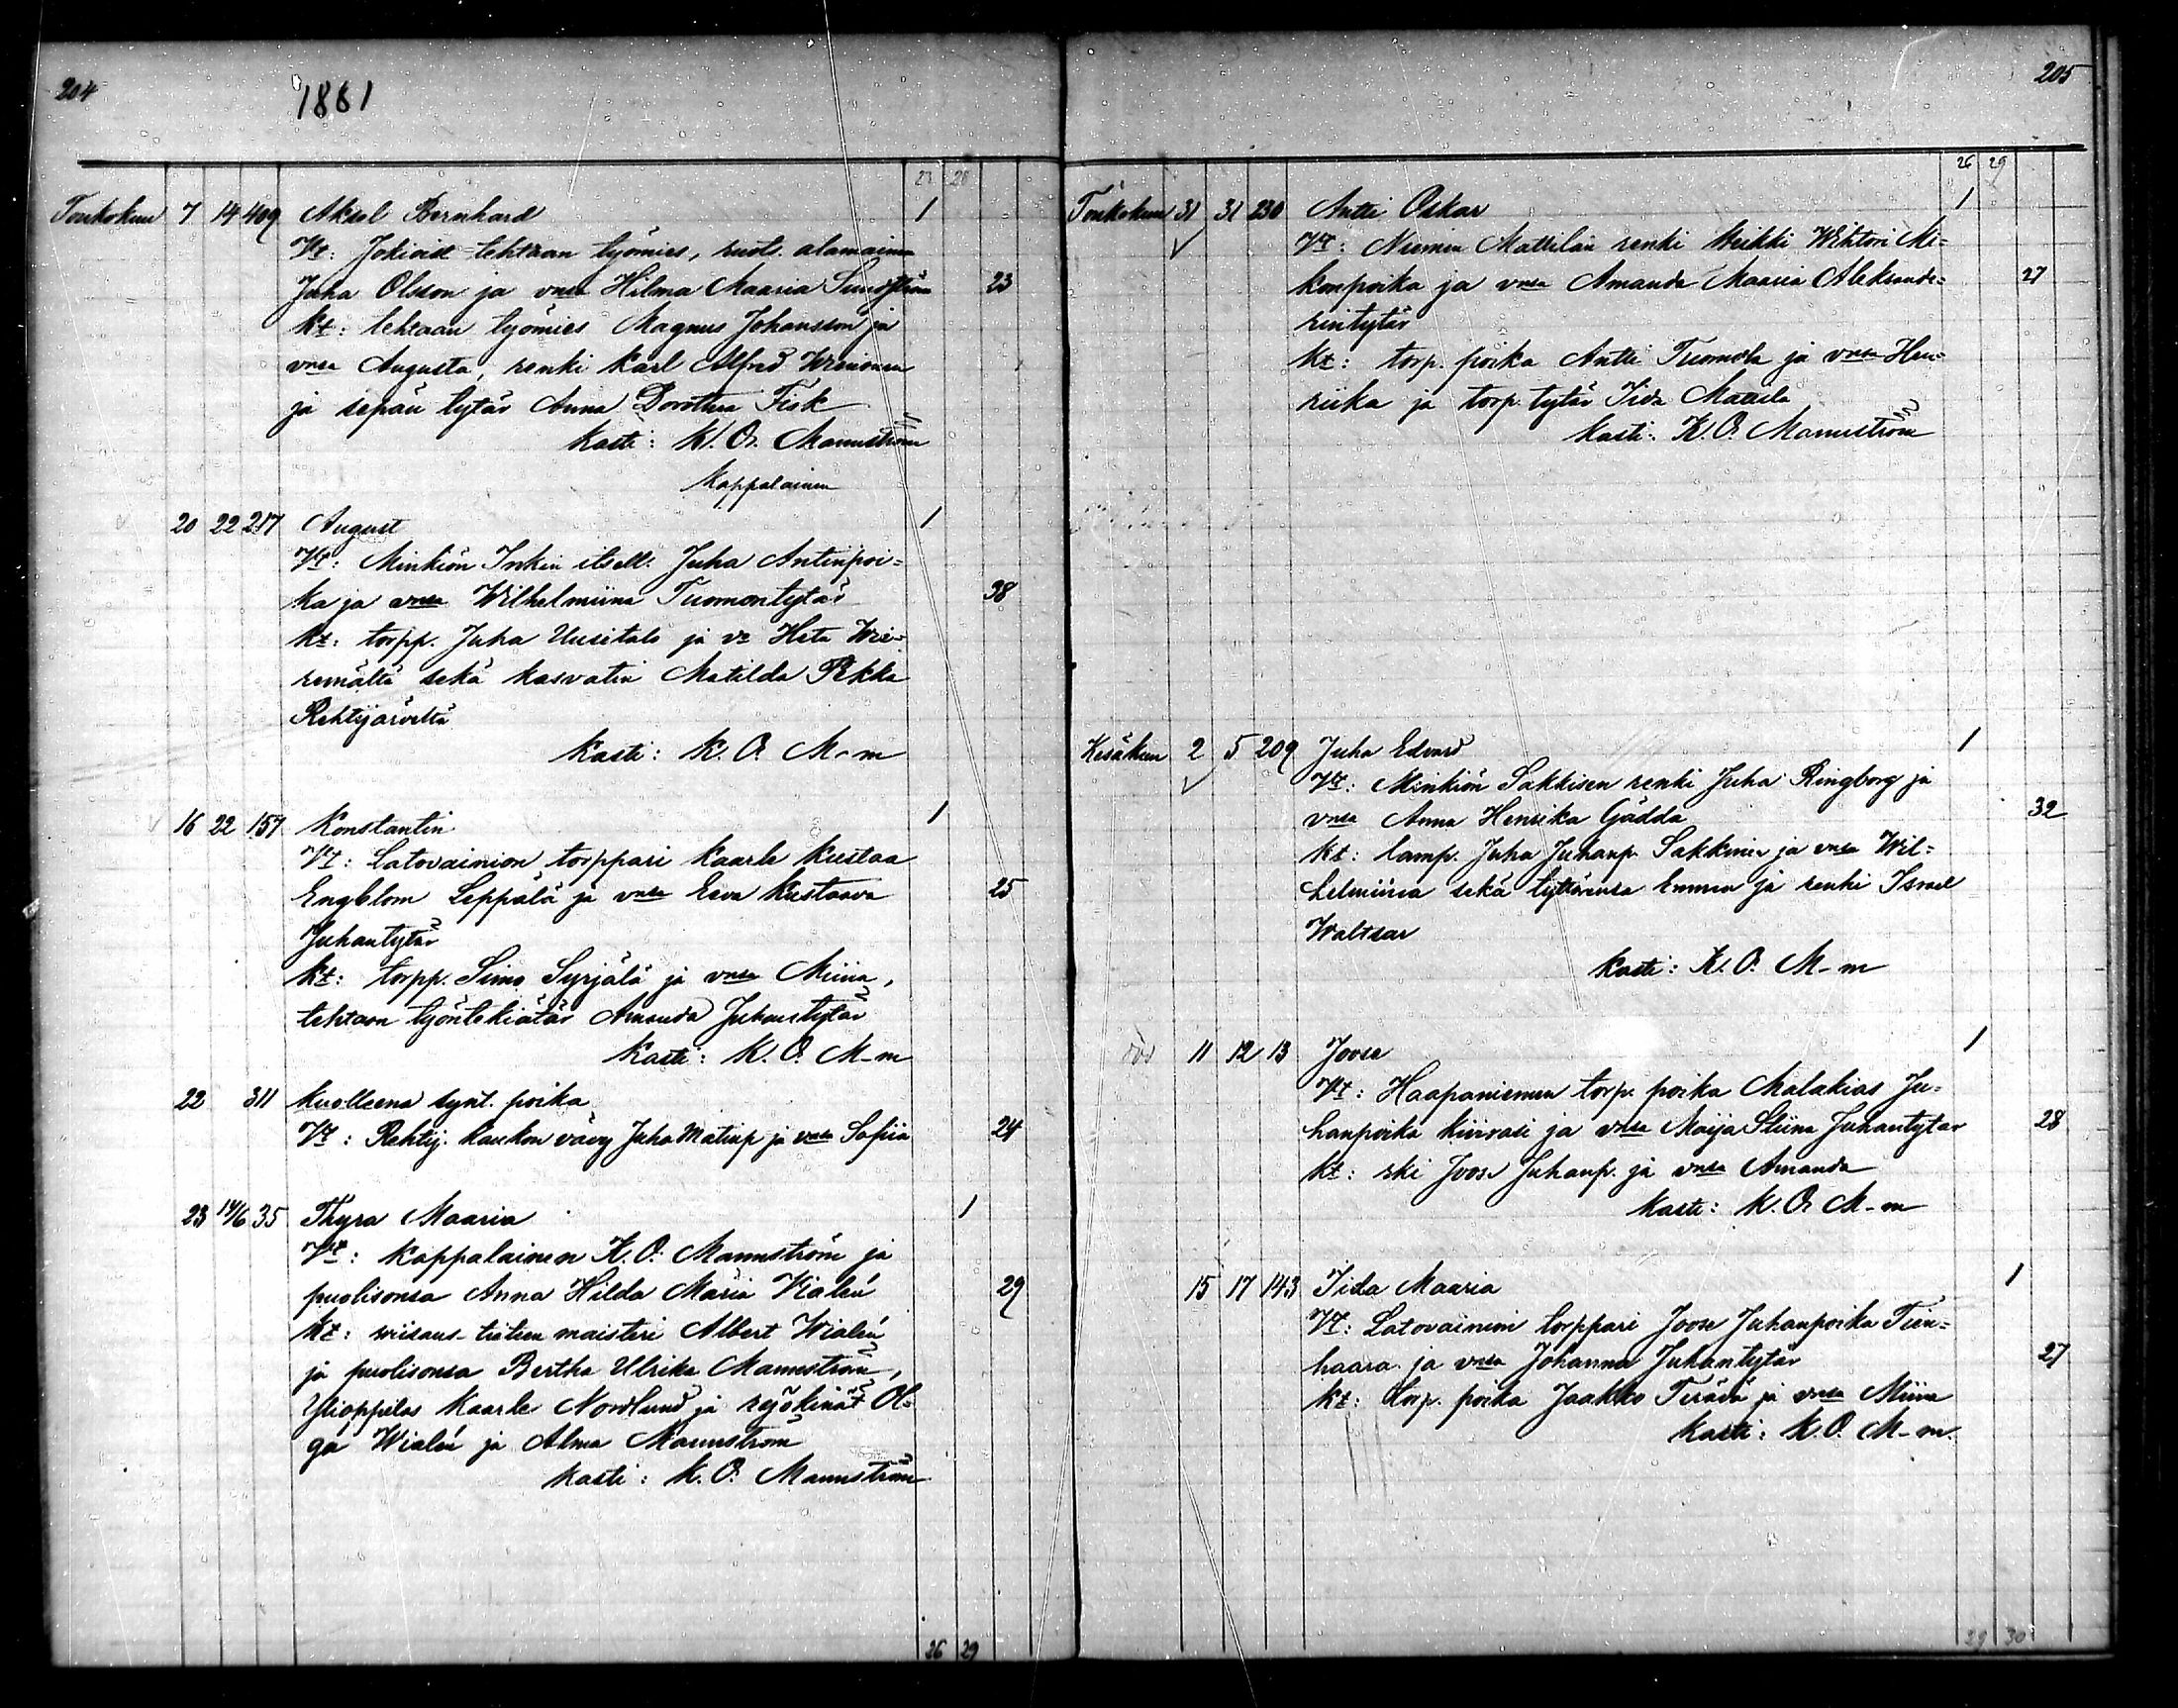 204
1881
23 28
Toukokuu 7 14 409 Aksel Bernhard 1
Vt: Jokioist tehtaan työmies, ruots. alamainen
Juha Olsson ja vnsa Hilma Maaria Sundström 23
kt: tehtaan työmies Magnus Johansson ja
vnsa Augusta, renki Karl Alfred
ja sepän tytär Anna Dorothea Fisk
Kasti: K. O. Mannström
Kappalainen
20 22 217 August 1
Vt: Minkiön Inkin itsell. Juha Antinpoi=
ka ja vnsa Wilhelmiina Tuomontytär 38
kt: torpp. Juha Uusitalo ja vo Heta Wie=
remältä sekä kasvatin Matilda Pekka
Rehtijärveltä
Kasti: K. O. M-m
16 22 157 Konstantin 1
Vt: Latovainion torppari Kaarle Kustaa
Engblom Leppälä ja vnsa Eeva Kustaava 25
Juhantytär
kt: torpp. Simo Syrjälä ja vnsa Miina,
tehtaan työntekiätär Amanda Juhantytär
Kasti: K. O. M-m
22 311 Kuolleena synt. poika
Vt: Rehtij. Kaukon vävy Juha Matinp ja vnsa Sofiia 24
23 14/6 35 Thyra Maaria 1
Vt: Kappalainen K. O. Mannström ja
puolisonsa Anna Hilda Maria Wialén 29
kt: viisaus-tieteen maisteri Albert Wialén
ja puolisonsa Bertha Ulrika Mannström,
Ylioppilas Kaarle Nordlund ja ryökinät Ol=
ga Wialén ja Alma Mannström
Kasti: K. O. Mannström
26 29
205
26 29
Toukokuu 31 31 230 Antti Oskar 1
Vt: Niemen Mattilan renki Heikki Wihtori Mi=
konpoika ja vnsa Amanda Maaria Aleksande= 27
rintytär
kt: torp. poika Antti Tuomola ja vnsa Hen=
riika ja torp. tytär Iida Mattila
Kasti: K. O. Mannström
Kesäkuu 2 5 209 Juha Edvard 1
Vt: Minkiön Sakkisen renki Juha Ringborg ja
vnsa Anna Henrika Gädda 32
kt: lamp. Juha Juhanp. Sakkinen ja vnsa Wil=
helmiina sekä tyttärensä Emma ja renki Israel
Waltsar
Kasti: K. O. M-m
11 12 13 Joose 1
Vt: Haapaniemen torp. poika Malakias Ju=
hanpoika Kiivasi ja vnsa Maija Stiina Juhantytär 28
kt: rki Joose Juhanp. ja vnsa Amanda
Kasti: K. O. M-m
15 17 143 Iida Maaria 1
Vt: Latovainion torppari Joose Juhanpoika Tien=
haara ja vnsa Johanna Juhantytär 27
kt: torp. poika Jaakko Terävä ja vnsa Miina
Kasti: K. O. M-m.
29 30